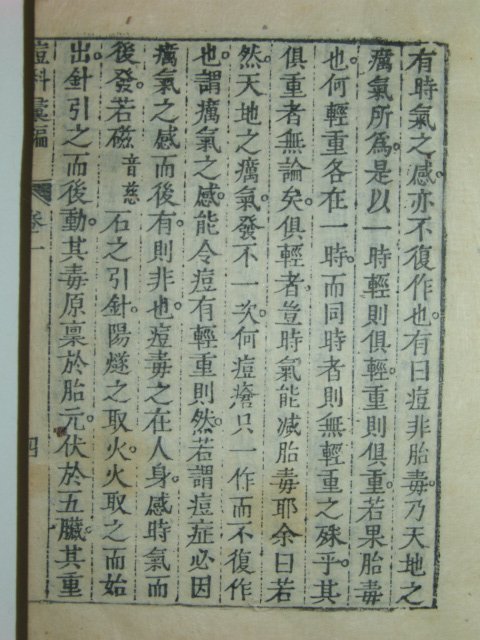 有時氣之感亦不復作也有曰痘非胎毒乃天地之
癘氣所爲是以一時輕則俱輕重則俱重若果胎毒
也何輕重各在一時而同時者則無輕重之殊乎其
俱重者無論矣俱輕者豈時氣能减胎毒耶余曰若
然天地之癘氣發不一次何痘瘡只一作而不復作
也謂癘氣之感能令痘有輕重則然若謂痘症必因
癘氣之感而後有則非也痘毒之在人身感時氣而
後發若磁音慈石之引針陽燧之取火火取之而始
出針引之而後動其毒原禀於胎元伏於五臟其重
痘科彙編 卷一 四